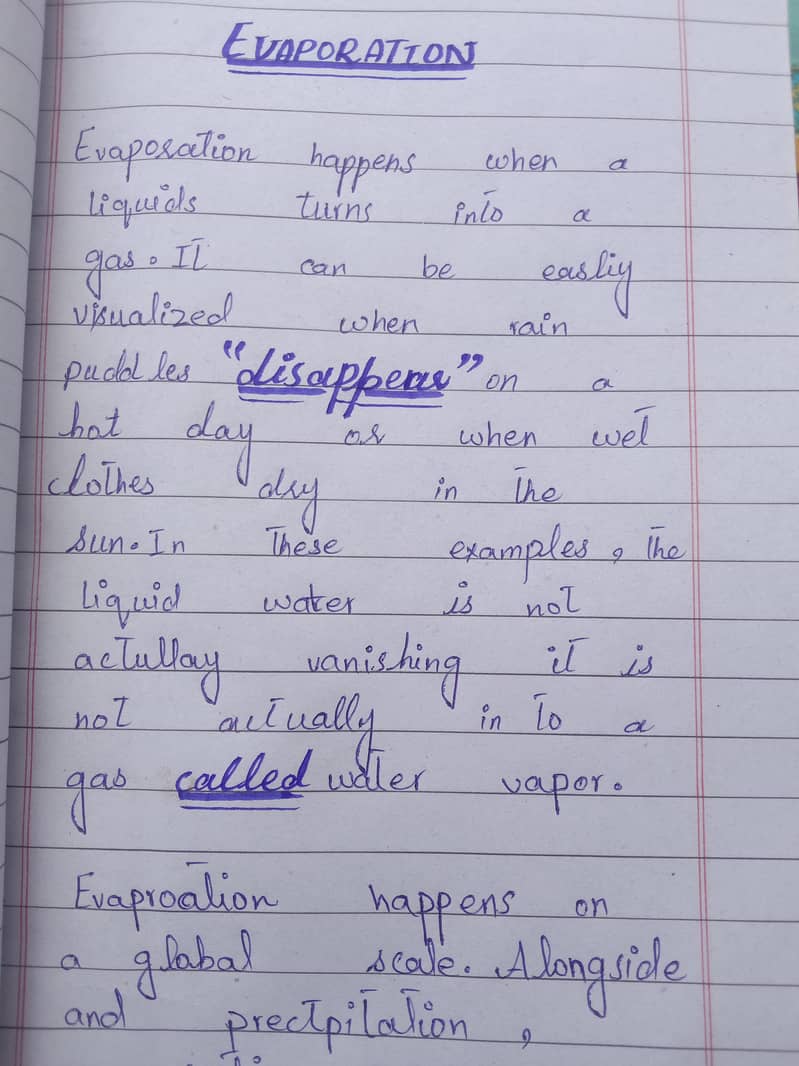 EVAPORATION
Evaporation happens when a
liquids turns into a
gas. It can be easliy
visualized when rain
puddles "disappear" on a
hot day or when wet
clothes dry in the
sun. In these examples, the
liquid water is not
actullay vanishing it is
not actually in to a
gas called water vapor.
Evaproation happens on
a glabal scale. Alongside
and prectpitation,